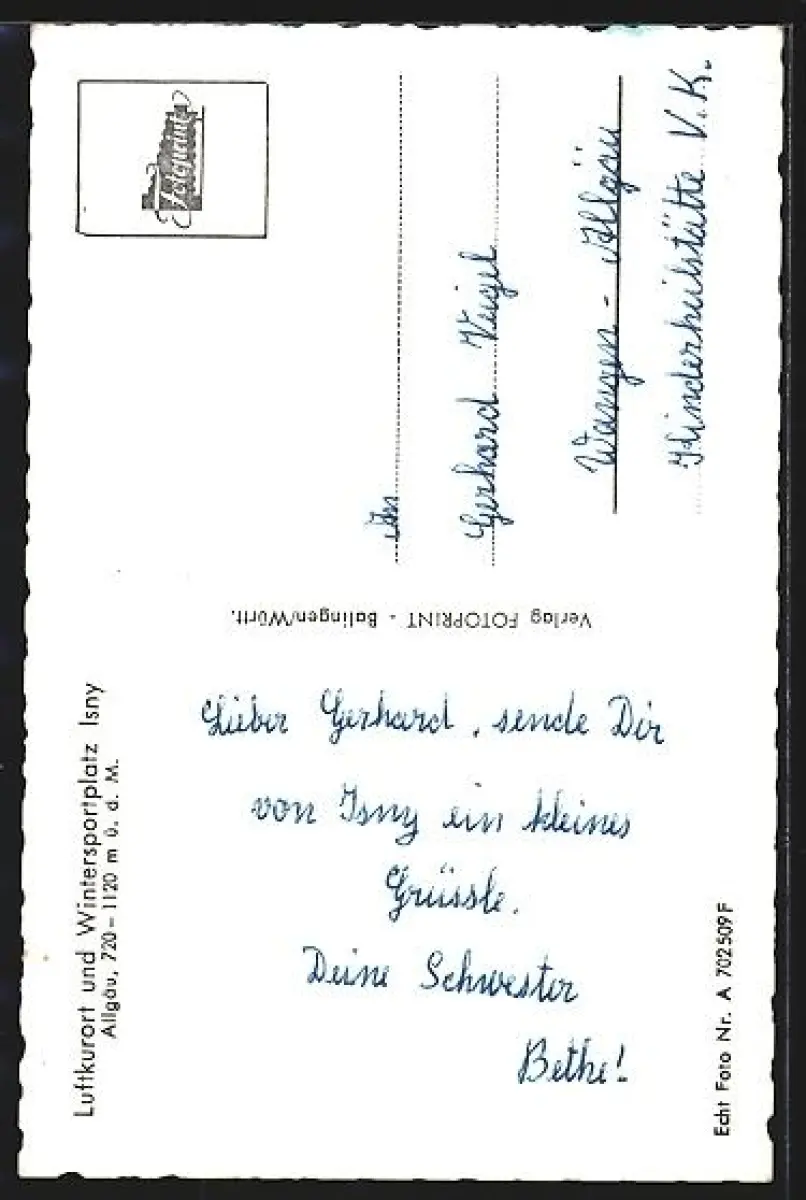 Luftkurort und Wintersportplatz Isny
Allgäu, 720–1120 m ü. d. M.
Lieber Gerhard, sende Dir
von Isny ein kleines
Grüssle.
Deine Schwester
Bethe!
Echt Foto Nr. A 702509F
Verlag FOTOPRINT - Balingen/Württ.
Fotoprint
An
Gerhard Veigel
Wangen - Allgäu
Kinderheilstätte V.K.